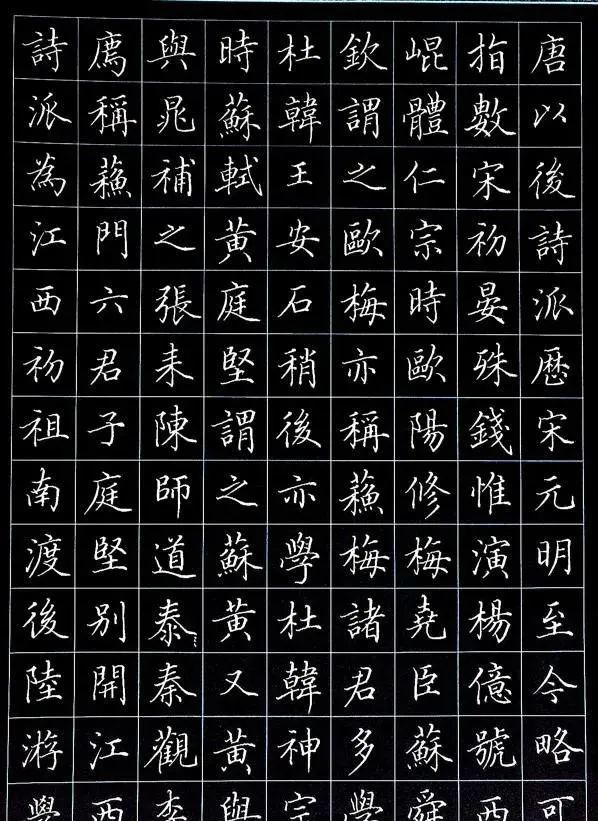 唐以後詩派厯宋元明至今略可
指數宋初晏殊錢惟演楊億號西
崐體仁宗時歐陽修梅堯臣蘇舜
欽謂之歐梅亦稱蘓梅諸君多學
杜韓王安石稍後亦學杜韓神宗
時蘇軾黃庭堅謂之蘇黃又黃與
與晁補之張耒陳師道泰秦觀李
廌稱蘓門六君子庭堅別開江西
詩派為江西初祖南渡後陸游學